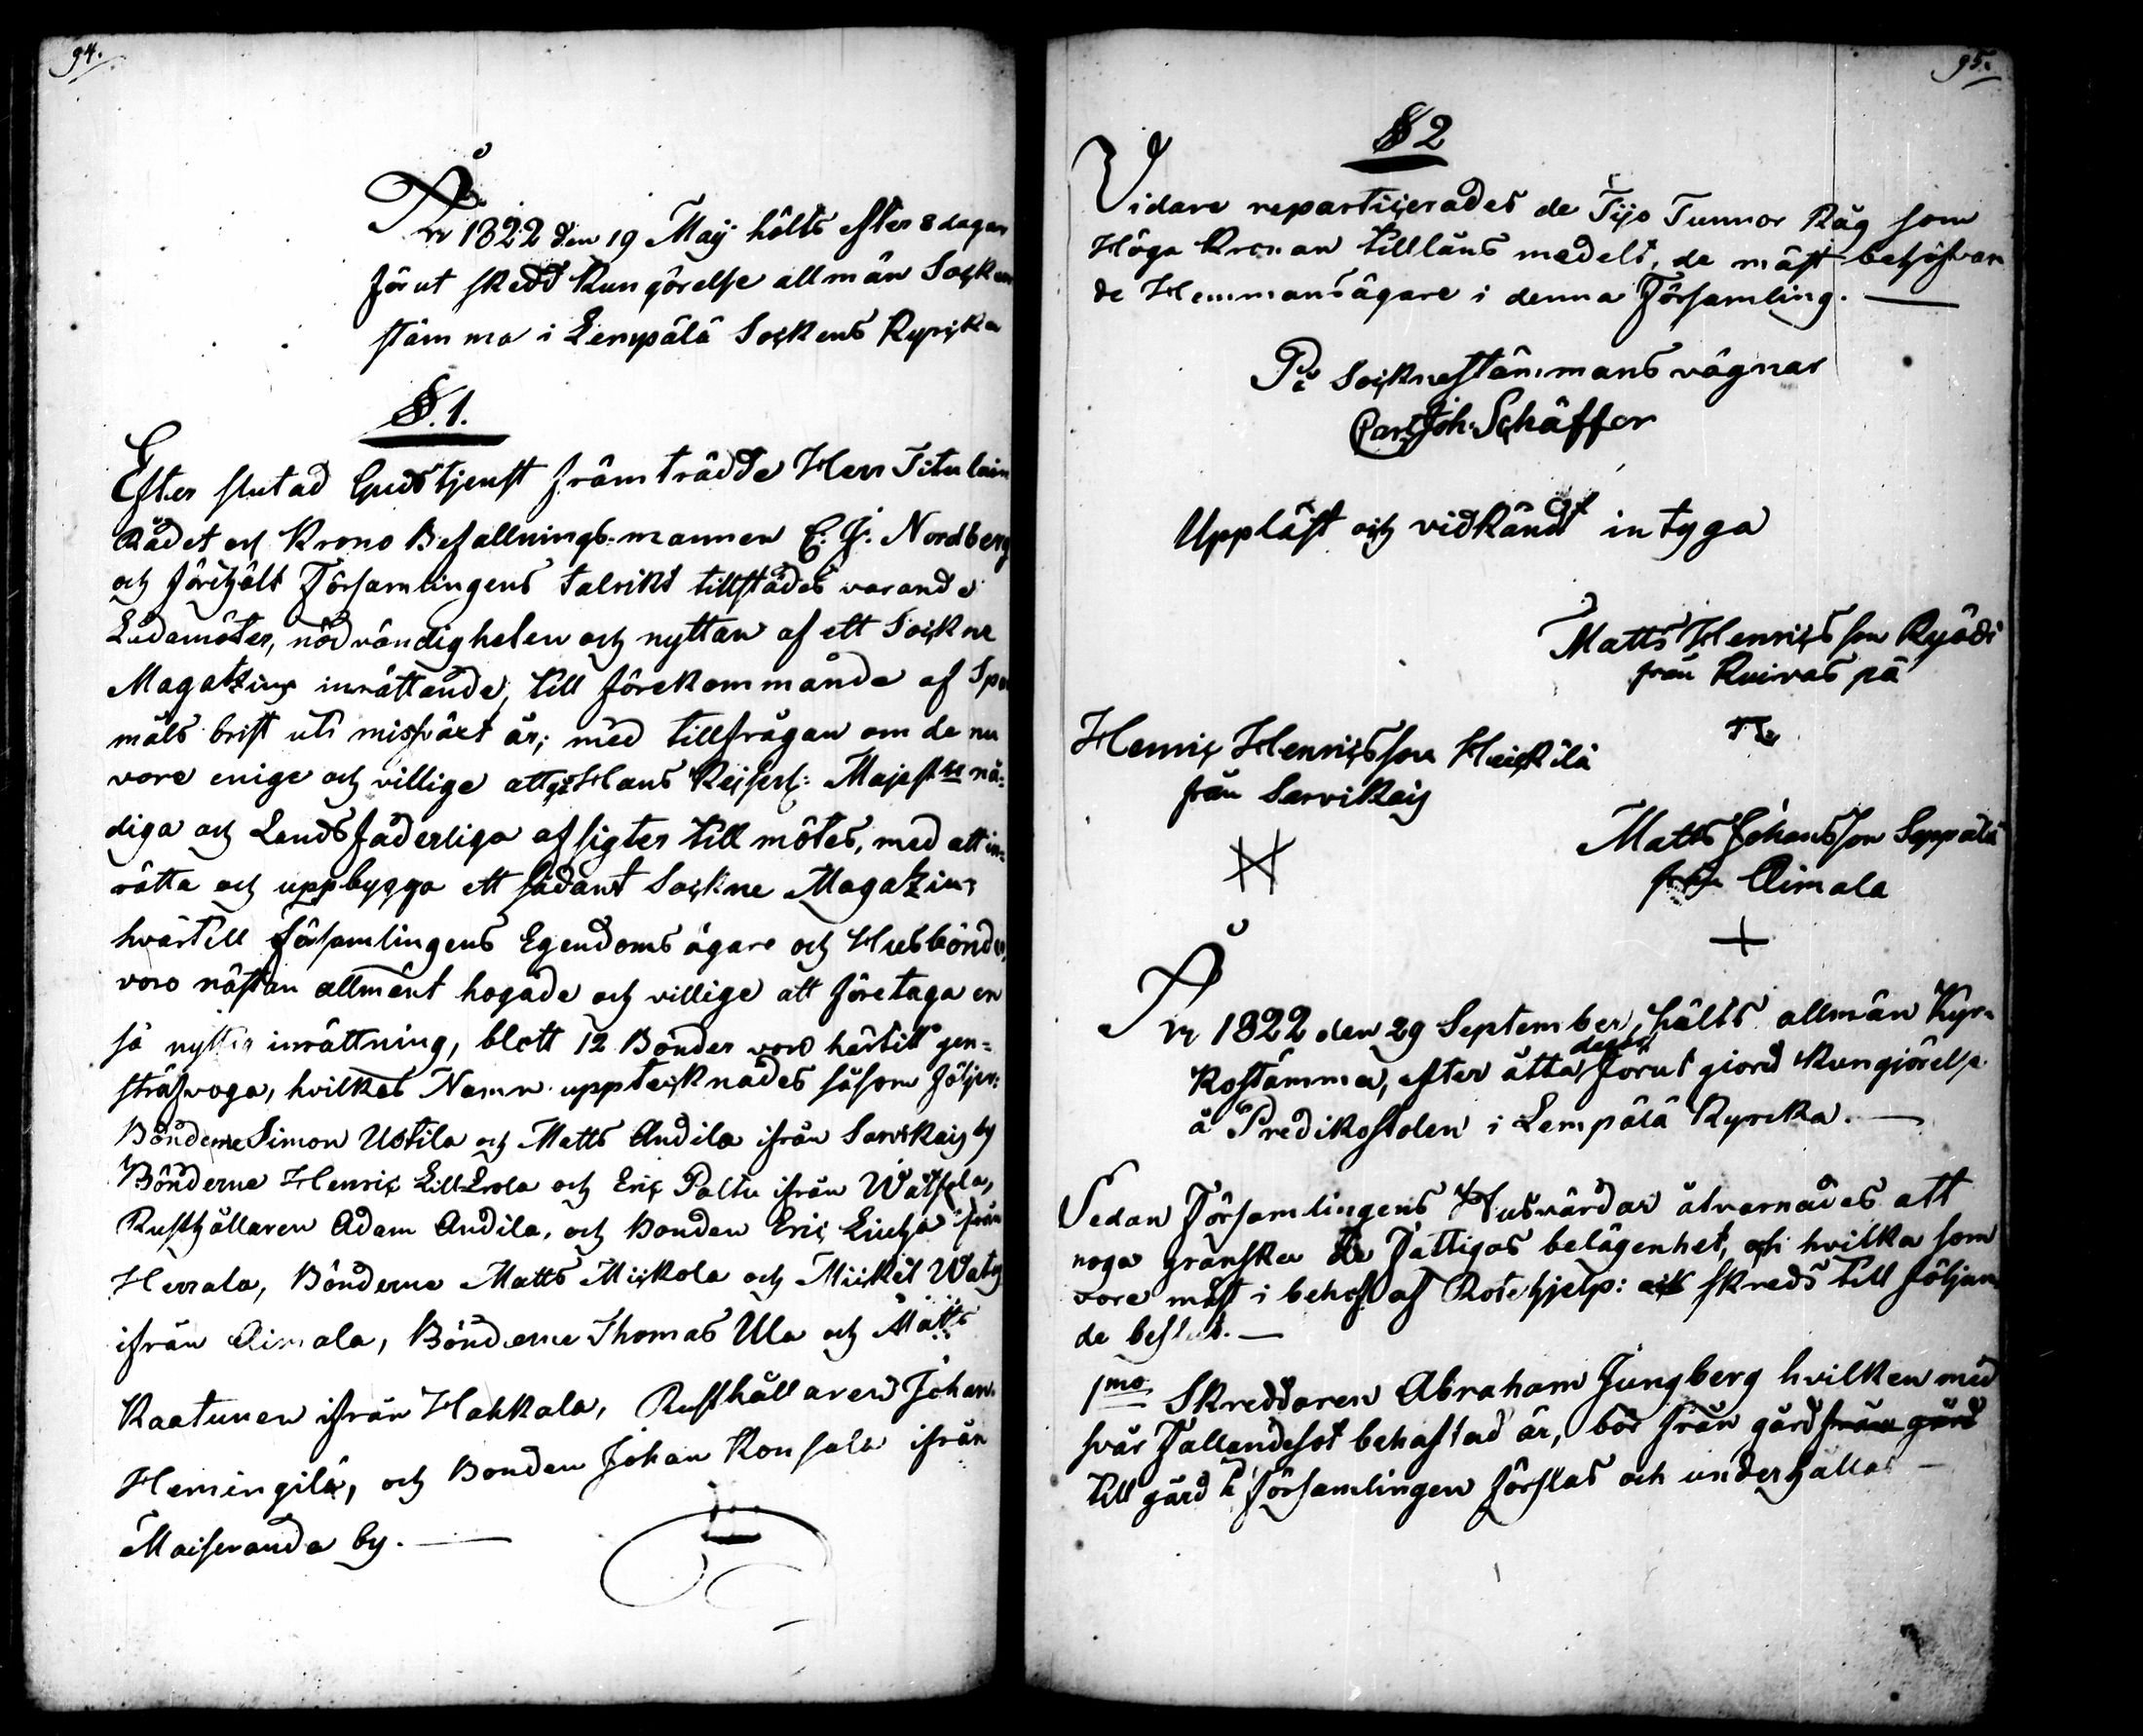 94.
År 1822 den 19 Maij hölts efter 8 dagar
förut skedd Kungörelse allmän Socken
stämma i Lempälä Sockens Kyrcka
§.1.
Efter slutad Gudstjenst främträdde Herr Titulair
Rådet och Krono Befallnings-mannen E. J. Nordberg
och förehölt Församlingens talrikt tillstädes varande
Ledamöter, nödvändigheten och nyttan af ett Sockne
Magatzins inrättande, till förekommande af Spa
måls brist uti missväxt år; med tillfrågan om de nu
vore enige och villige att Hans Kejserl: Majest:ts nå-
diga och Landsfäderliga afsigter till mötes, med att in-
rätta och uppbygga ett sådant Sockne Magatzin;
hvartill församlingens Egendoms ägare och Husbönder
voro nästan allment hogade och villige att företaga en
så nyttig inrättning, blott 12 Bönder voro härtill gen-
sträfvoga, hvilkas Namn uppteknades såsom följer:
Bönderne Simon Ustila och Matts Andila ifrån Sarvikais by
Bönderne Henric Lill-Erola och Eric Paltu ifrån Watsela,
Rusthållaren Adam Andila, och Bonden Eric Liuha från
Herrala, Bönderne Matts Mickola och Mickel Waty
ifrån Aimala, Bönderne Thomas Ula och Matts
Kaatunen ifrån Hakkala, Rusthållaren Johan
Hemingilä, och Bonden Johan Konsala ifrån
Maiseranda by.
95.
§ 2
Vidare reparticerades de Tijo Tunnor Råg som
Höga Kronan tilllåns medelt, de mäst behöfvan
de Hemmansägare i denna Församling.
På Socknestämmans vägnar
Carl Joh. Schäffer
Uppläst och vidkändt intyga
Matts Henricsson Ryödi
från Kuivaspä
Henric Henricsson Heickilä
från Sarvikais
Matts Johansson Seppälä
från Aimala
År 1822 den 29 September, hålts allmän Kyr-
kostämma, efter åtta dagar förut giord Kungjörelse
å Predikostolen i Lempälä Kyrcka.
Sedan Församlingens Husvärdar åtvarnades att
noga granska de Fattigas belägenhet, och hvilka som
vore mäst i behof af Rotehjelp: skreds till följan
de beslut.
1mo Skreddaren Abraham Ljungberg hvilken med
svår Fallandesot behaftad är, bör från gård från gård
till gård i Församlingen förslas och underhållas